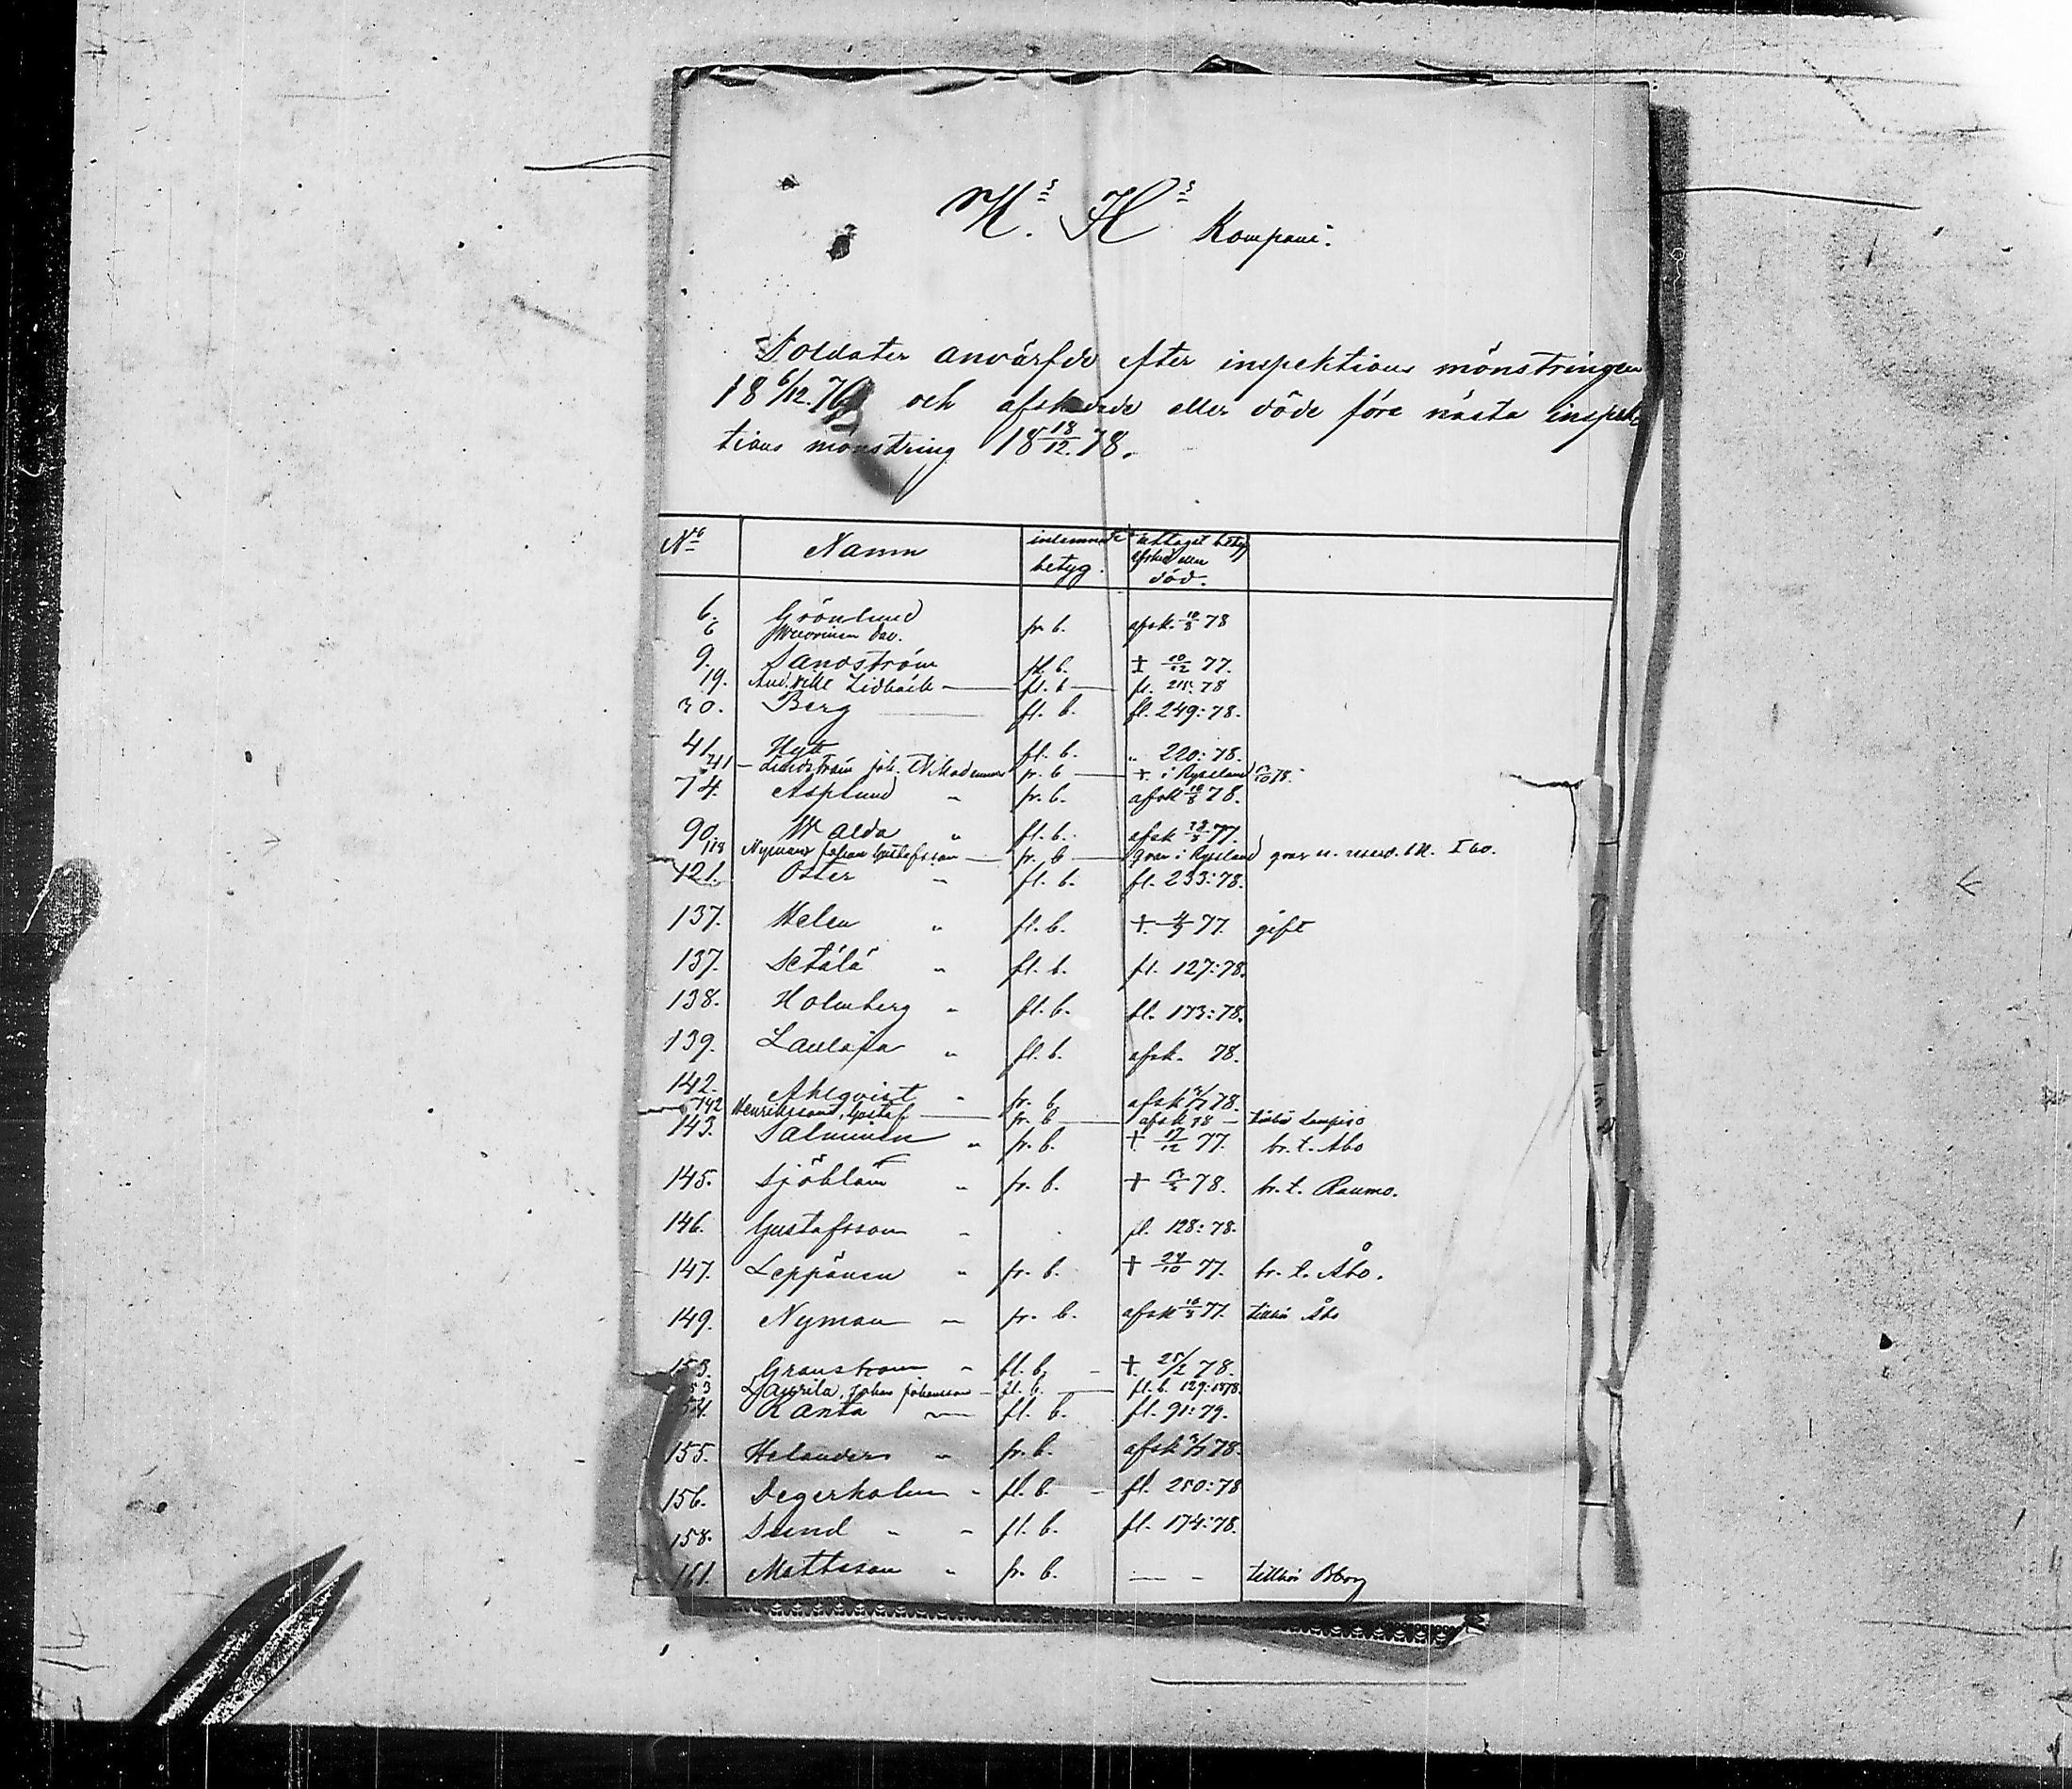 H.s H.s Kompani.
Soldater anvärfde efter inspektions mönstringen
18 6/12. 76 och afskedade eller döde före nästa inspek
tions mönstring 18 18/12. 78.
No Namn inlemnade betyg. uttaget betyg afsked eller död.
6. Grönlund fr. b. afsk. 10/8 78
6 dav.
9. Sandström fl. b. ‡ 10/12 77.
19. And. Vilh. Lidbäck — fl. b — fl. 78
30. Berg fl. b. fl. 249: 78.
41. fl. b. " 220: 78.
41 — Lindström Joh. fr. b — †. i Ryssland 78.
74. Asplund " fr. b. afsk 10/8 78.
90. Walda " fl. b. afsk 77.
118 Nyman, Johan Gustafsson — fr. b — qvar i Ryssland qvar
121. Öster " fl. b. fl. 233: 78.
137. Helen " fl. b. †. 77. gift
137. Setälä " fl. b. fl. 127: 78.
138. Holmberg " fl. b. fl. 173: 78.
139. Laulaja " fl. b. afsk. 78.
142. Ahlqvist " fr. b. afsk 78.
142 Henriksson, Gustaf — fr. b — afsk 78 —
143. Salminen " fr. b. †. 17/12 77. br. t. Abo
145. Sjöblom " fr. b. † 78. br. t. Raumo.
146. Gustafsson " fl. 128: 78.
147. Leppänen " fr. b. † 24/10 77. br. t. Åbo.
149. Nyman " fr. b. afsk 10/8 77. tillhör Åbo
153. Granstrom " fl. b. † 25/2 78.
53 Laurila, Johan Johansson — fl. b. — fl. b. 129: 1878.
54. Ranta " fl. b. fl. 91: 79.
155. Helander " fr. b. afsk 78.
156. Degerholm " fl. b. fl. 250: 78
158. Sund " " fl. b. fl. 174: 78.
161. Mattsson " fr. b. — - tillhör Bborg